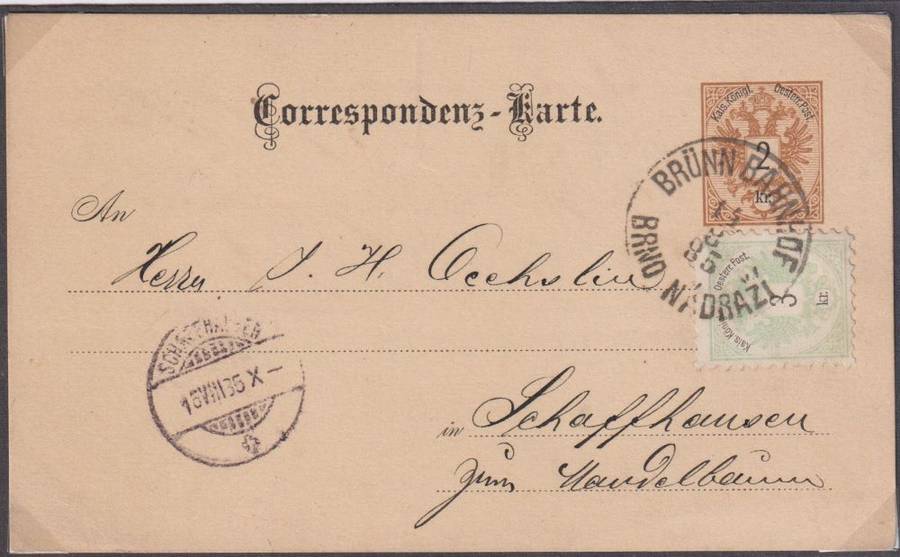 Correspondenz-Karte.
Kais. Königl. Oesterr. Post.
2
kr.
BRÜNN BAHNHOF
85
BRNO NÁDRAŽÍ
Kais. Königl. Oesterr. Post.
3
kr.
An
Herrn J. H. Oechslin
SCHAFFHAUSEN
in Schaffhausen
zum Mandelbaum